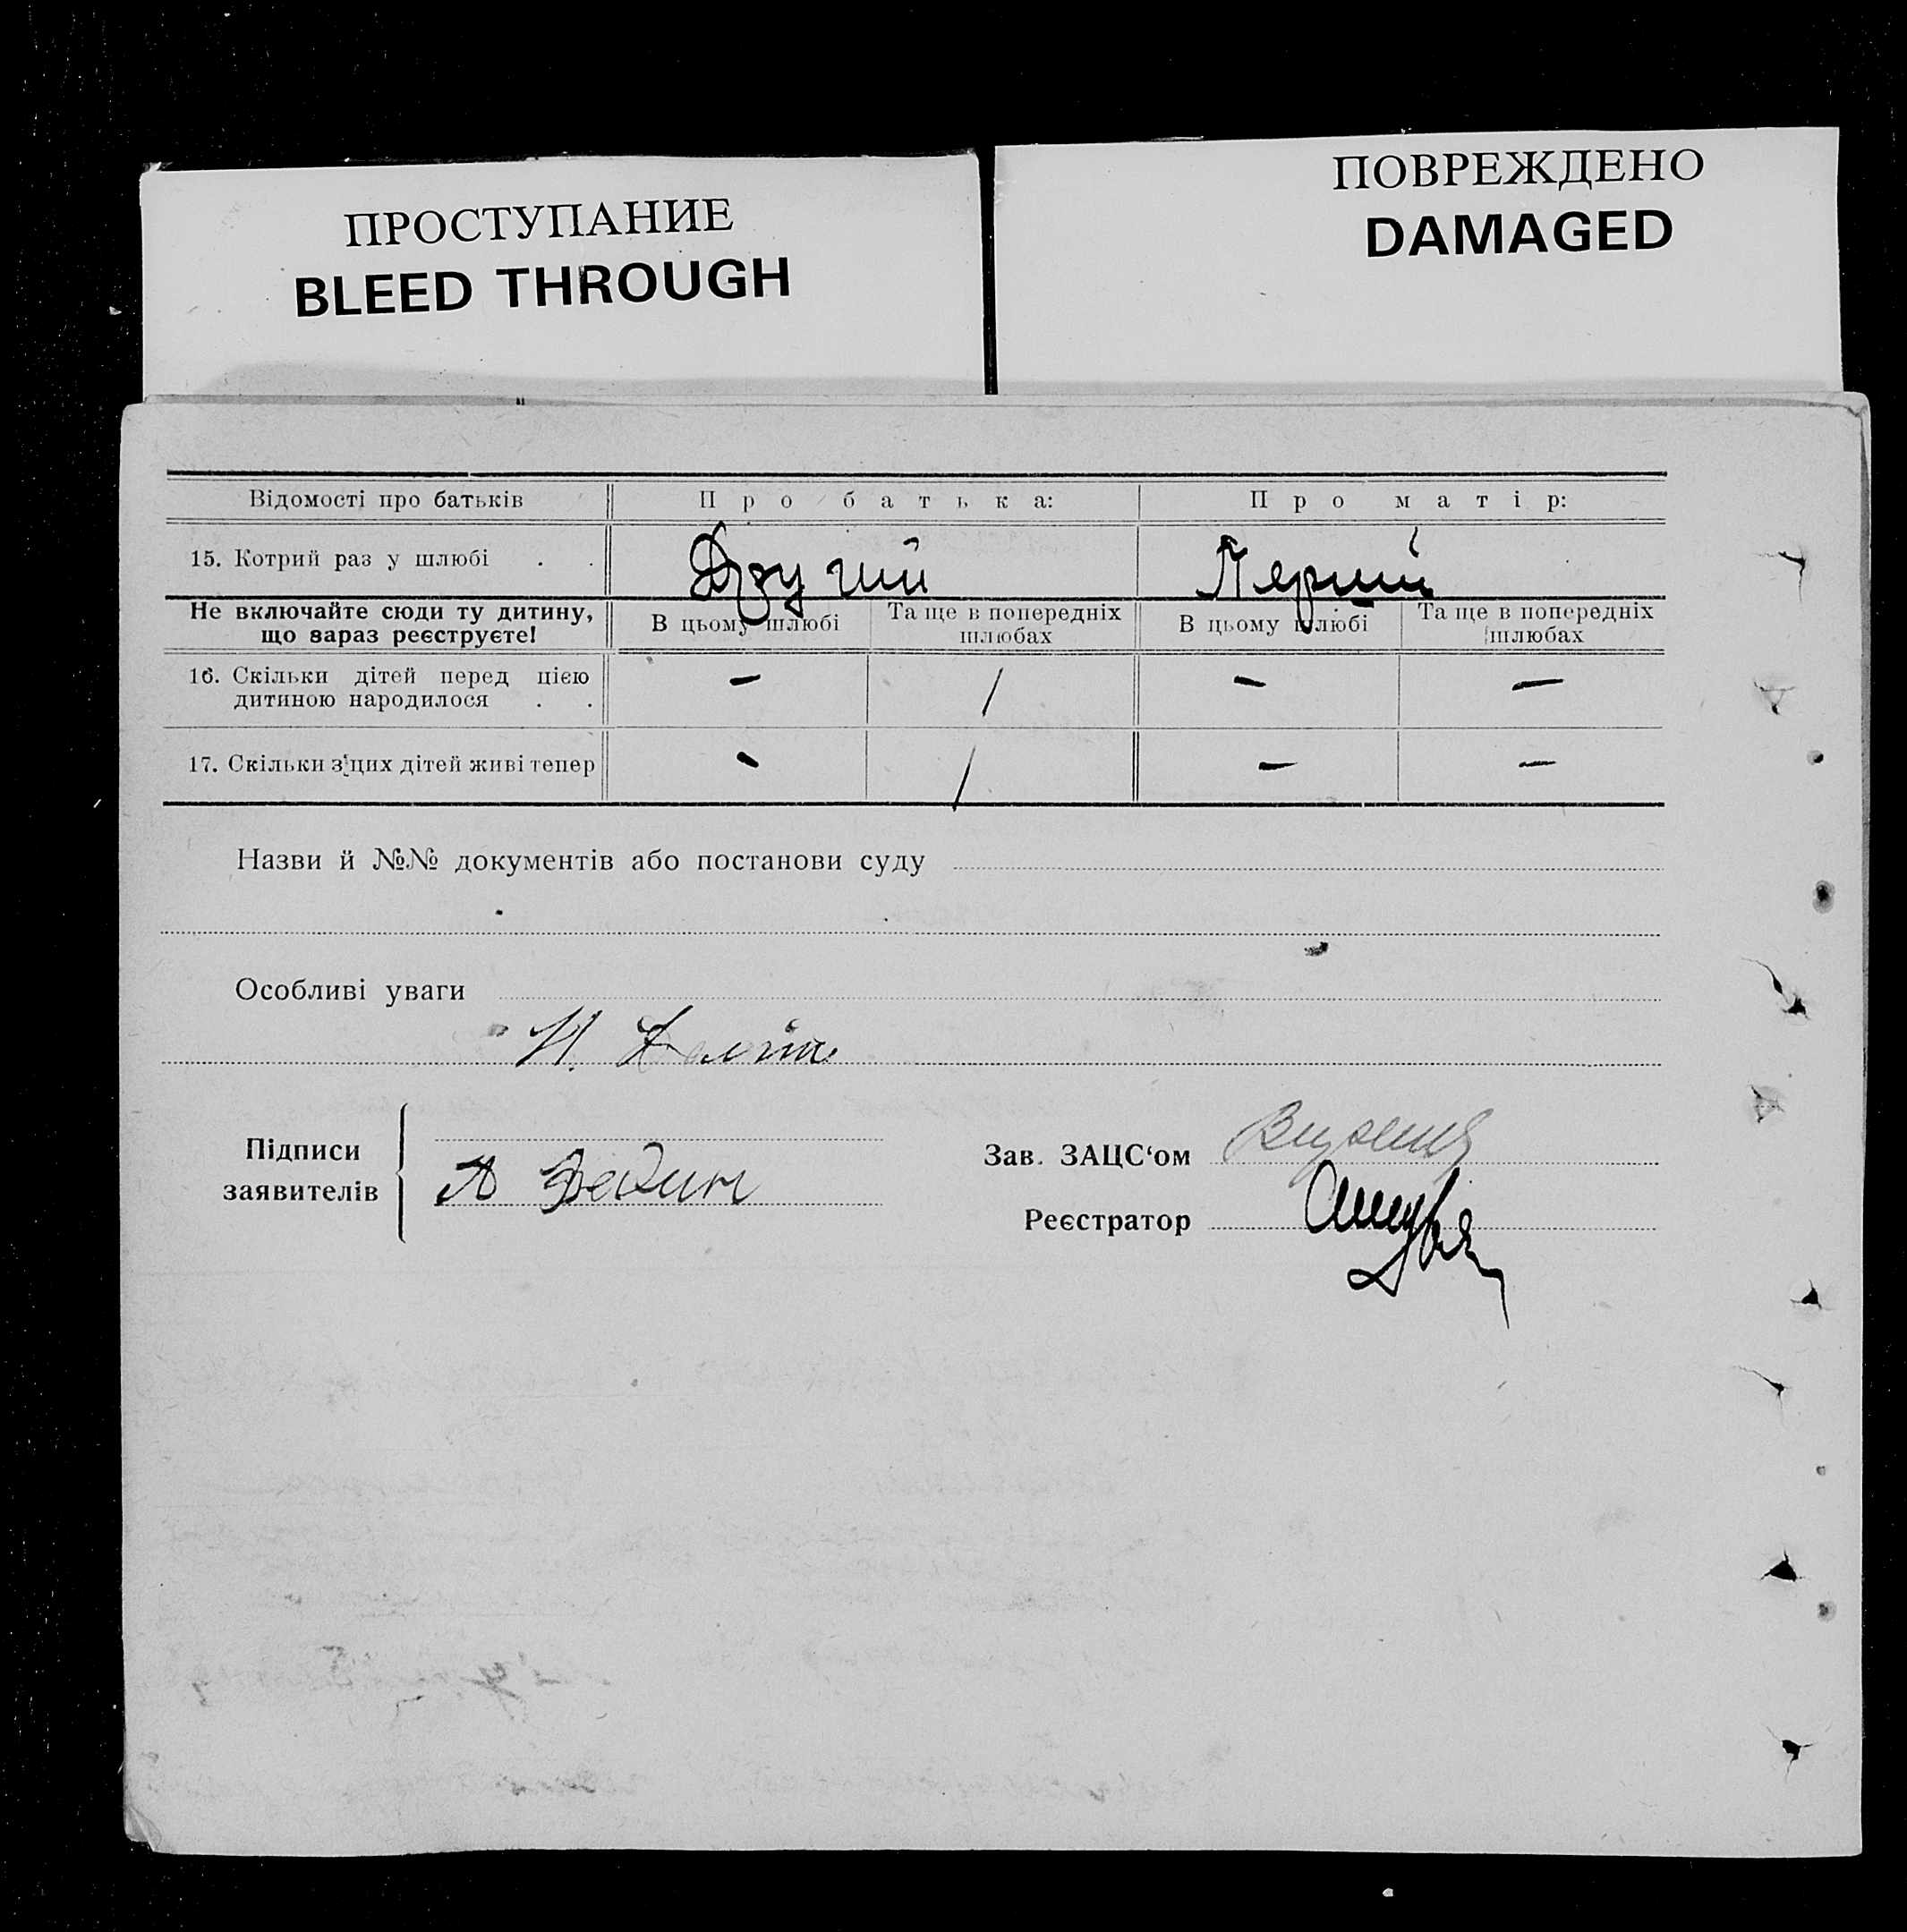 ПРОСТУПАНИЕ
BLEED THROUGH
ПОВРЕЖДЕНО
DAMAGED
Відомості про батьків Про батька: Про матір:
15. Котрий раз у шлюбі . . Другий Перший
Не включайте сюди ту дитину, що зараз реєструєте! В цьому шлюбі Та ще в попередніх шлюбах В цьому шлюбі Та ще в попередніх шлюбах
16. Скільки дітей перед цією дитиною народилося . . — / — —
17. Скільки з цих дітей живі тепер - / — —
Назви й №№ документів або постанови суду
Особливі уваги
Н.
Підписи заявителів
Зав. ЗАЦС‘ом
Реєстратор